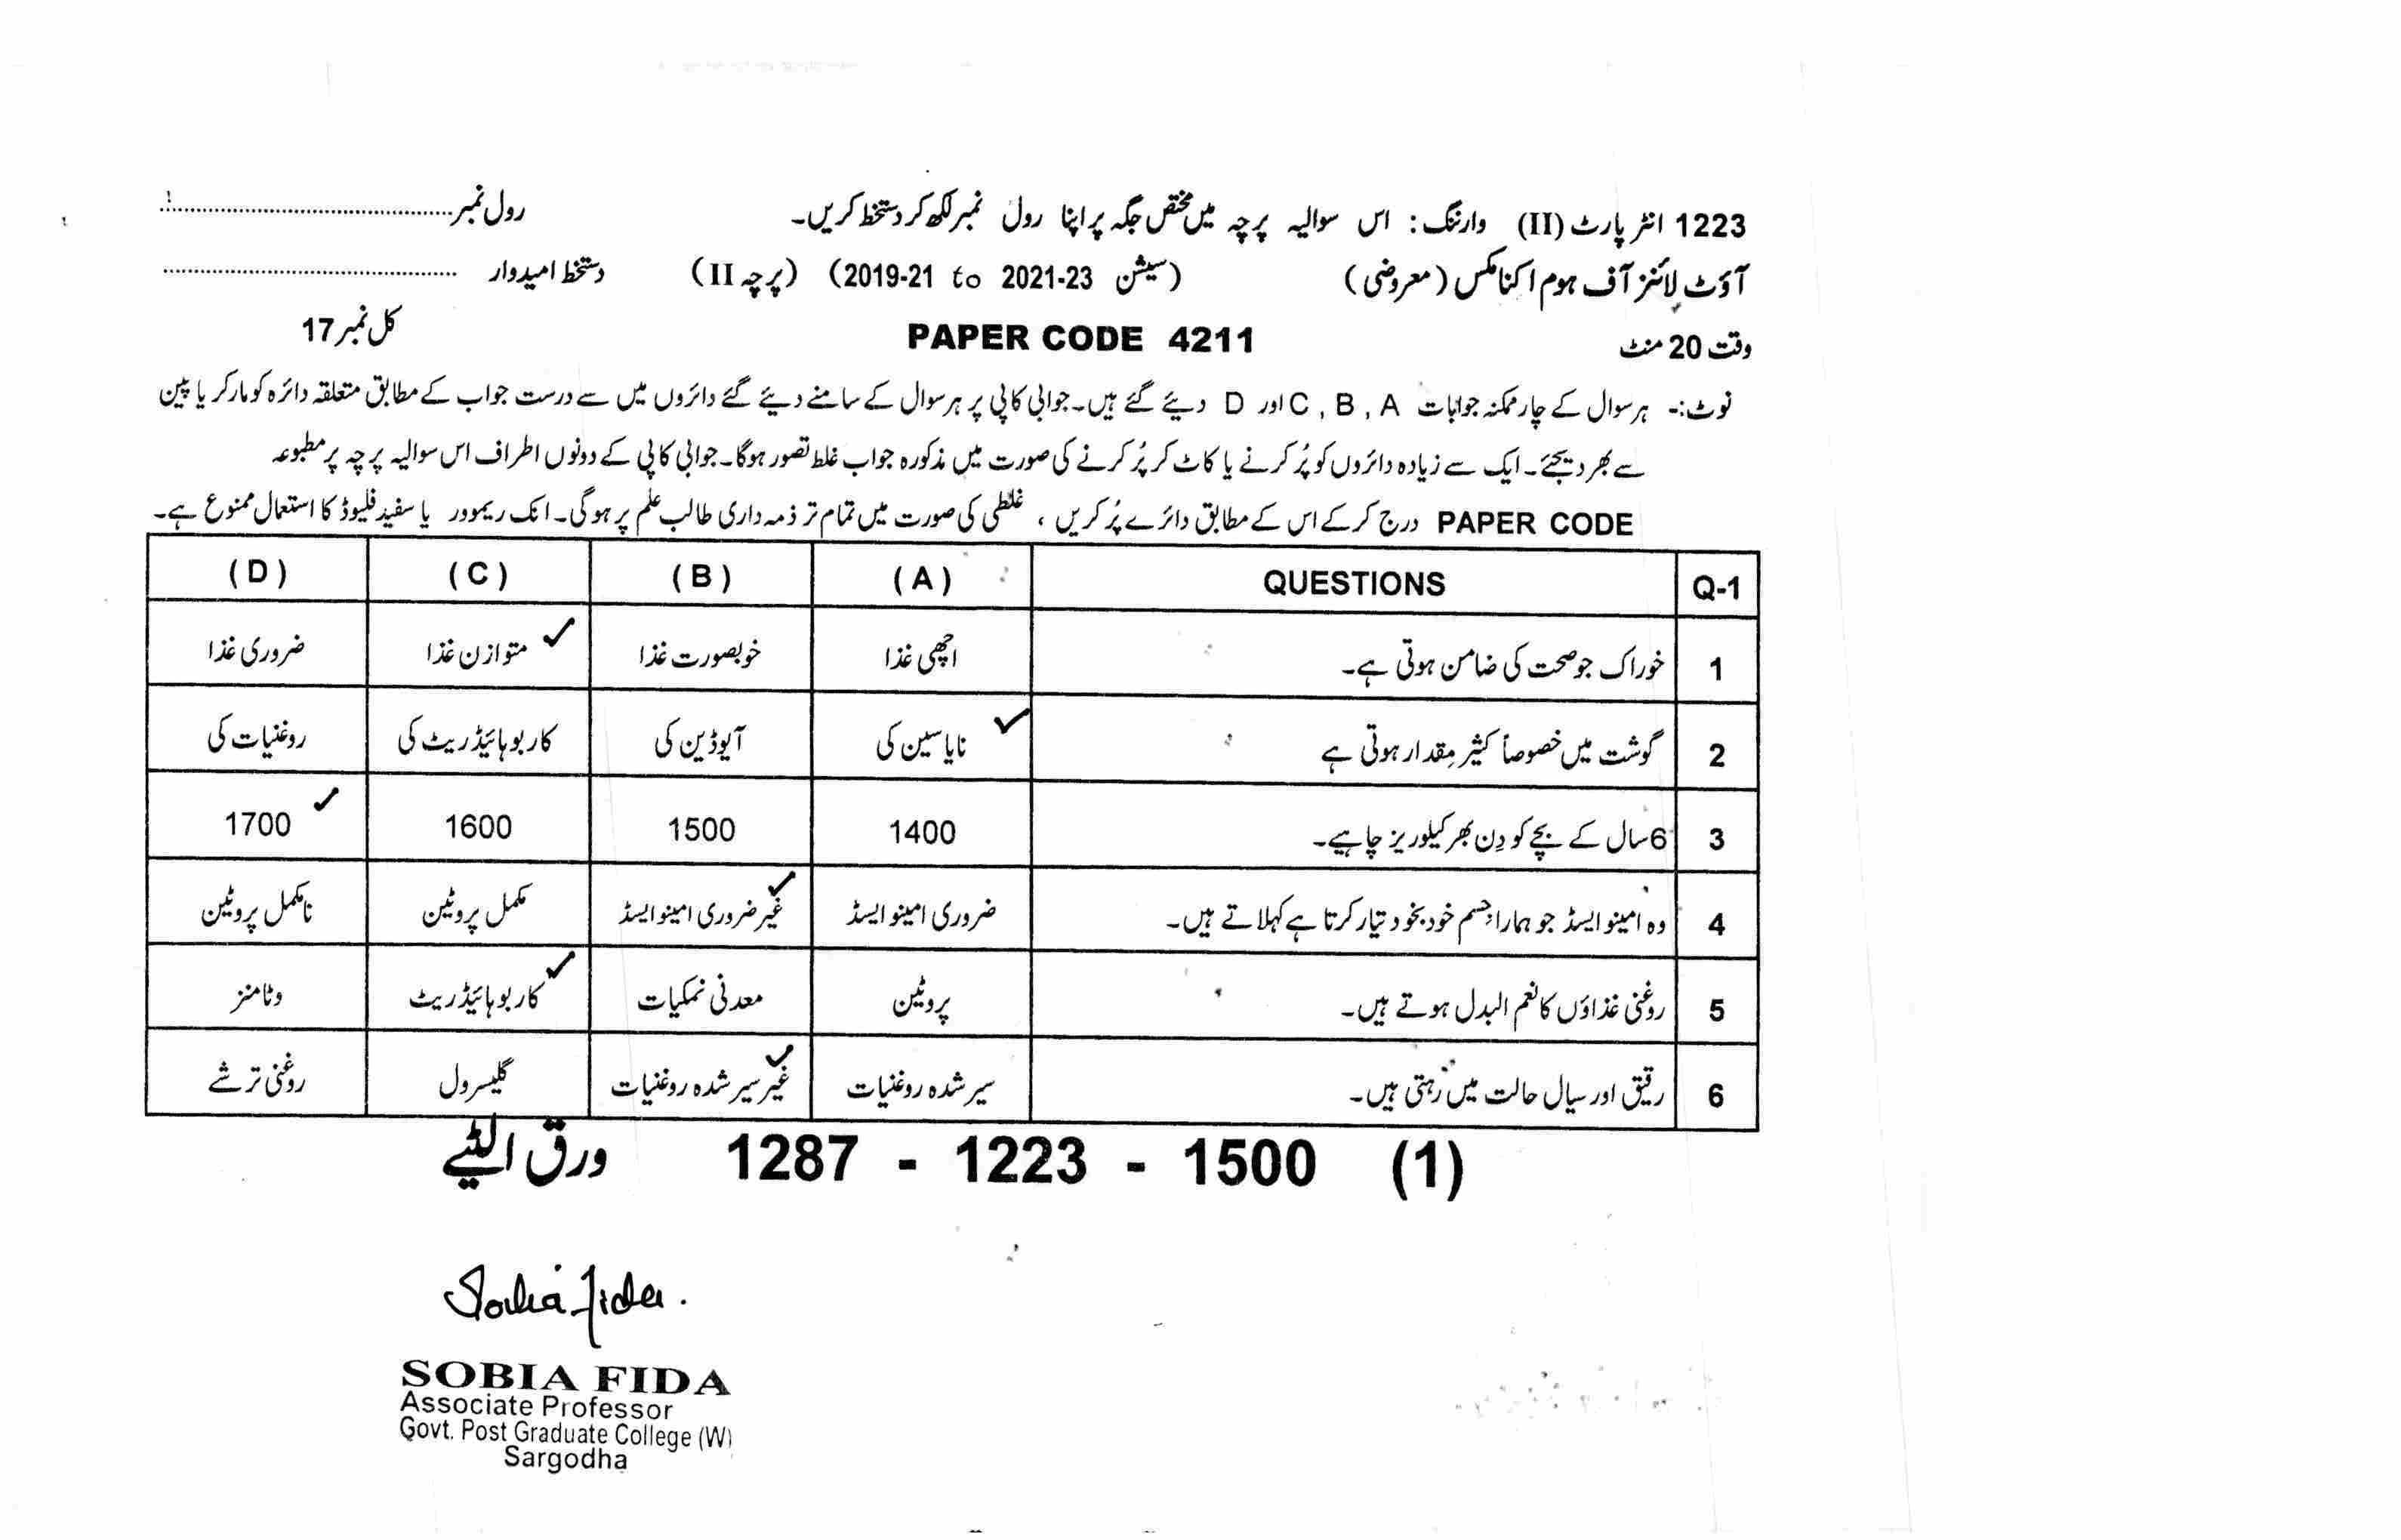 1223 انٹر پارٹ (II) وارننگ: اس سوالیہ پرچہ میں مختص جگہ پر اپنا رول نمبر لکھ کر دستخط کریں۔ رول نمبر
آؤٹ لائنز آف ہوم اکنامکس (معروضی) (سیشن 2021-23 to 2019-21) (پرچہ II) دستخط امیدوار
وقت 20 منٹ PAPER CODE 4211 کل نمبر 17
نوٹ:- ہر سوال کے چار ممکنہ جوابات C , B , A اور D دیئے گئے ہیں۔ جوابی کاپی پر ہر سوال کے سامنے دیئے گئے دائروں میں سے درست جواب کے مطابق متعلقہ دائرہ کو مارکر یا پین
سے بھر دیجئے۔ ایک سے زیادہ دائروں کو پُر کرنے یا کاٹ کر پُر کرنے کی صورت میں مذکورہ جواب غلط تصور ہوگا۔ جوابی کاپی کے دونوں اطراف اس سوالیہ پرچہ پر مطبوعہ
PAPER CODE درج کر کے اس کے مطابق دائرے پُر کریں ، غلطی کی صورت میں تمام تر ذمہ داری طالب علم پر ہوگی۔ انک ریموور یا سفید فلیوڈ کا استعمال ممنوع ہے۔
Q-1 QUESTIONS (A) (B) (C) (D)
1 خوراک جو صحت کی ضامن ہوتی ہے۔ اچھی غذا خوبصورت غذا متوازن غذا ✓ ضروری غذا
2 گوشت میں خصوصاً کثیر مقدار ہوتی ہے نایاسین کی ✓ آیوڈین کی کاربوہائیڈریٹ کی روغنیات کی
3 6 سال کے بچے کو دِن بھر کیلوریز چاہیے۔ 1400 1500 1600 1700 ✓
4 وہ امینو ایسڈ جو ہمارا جسم خود بخود تیار کرتا ہے کہلاتے ہیں۔ ضروری امینو ایسڈ غیر ضروری امینو ایسڈ ✓ مکمل پروٹین نامکمل پروٹین
5 روغنی غذاؤں کا نعم البدل ہوتے ہیں۔ پروٹین معدنی نمکیات کاربوہائیڈریٹ ✓ وٹامنز
6 رقیق اور سیال حالت میں رہتی ہیں۔ سیر شدہ روغنیات غیر سیر شدہ روغنیات ✓ گلیسرول روغنی ترشے
1287 - 1223 - 1500 (1) ورق الٹیے
Sobia Fida.
SOBIA FIDA
Associate Professor
Govt. Post Graduate College (W)
Sargodha